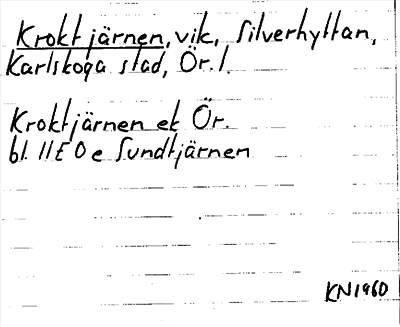 Kroktjärnen, vik, Silverhyttan,
Karlskoga stad, Ör. l.
Kroktjärnen ek Ör.
bl. 11E 0e Sundtjärnen
KN1960